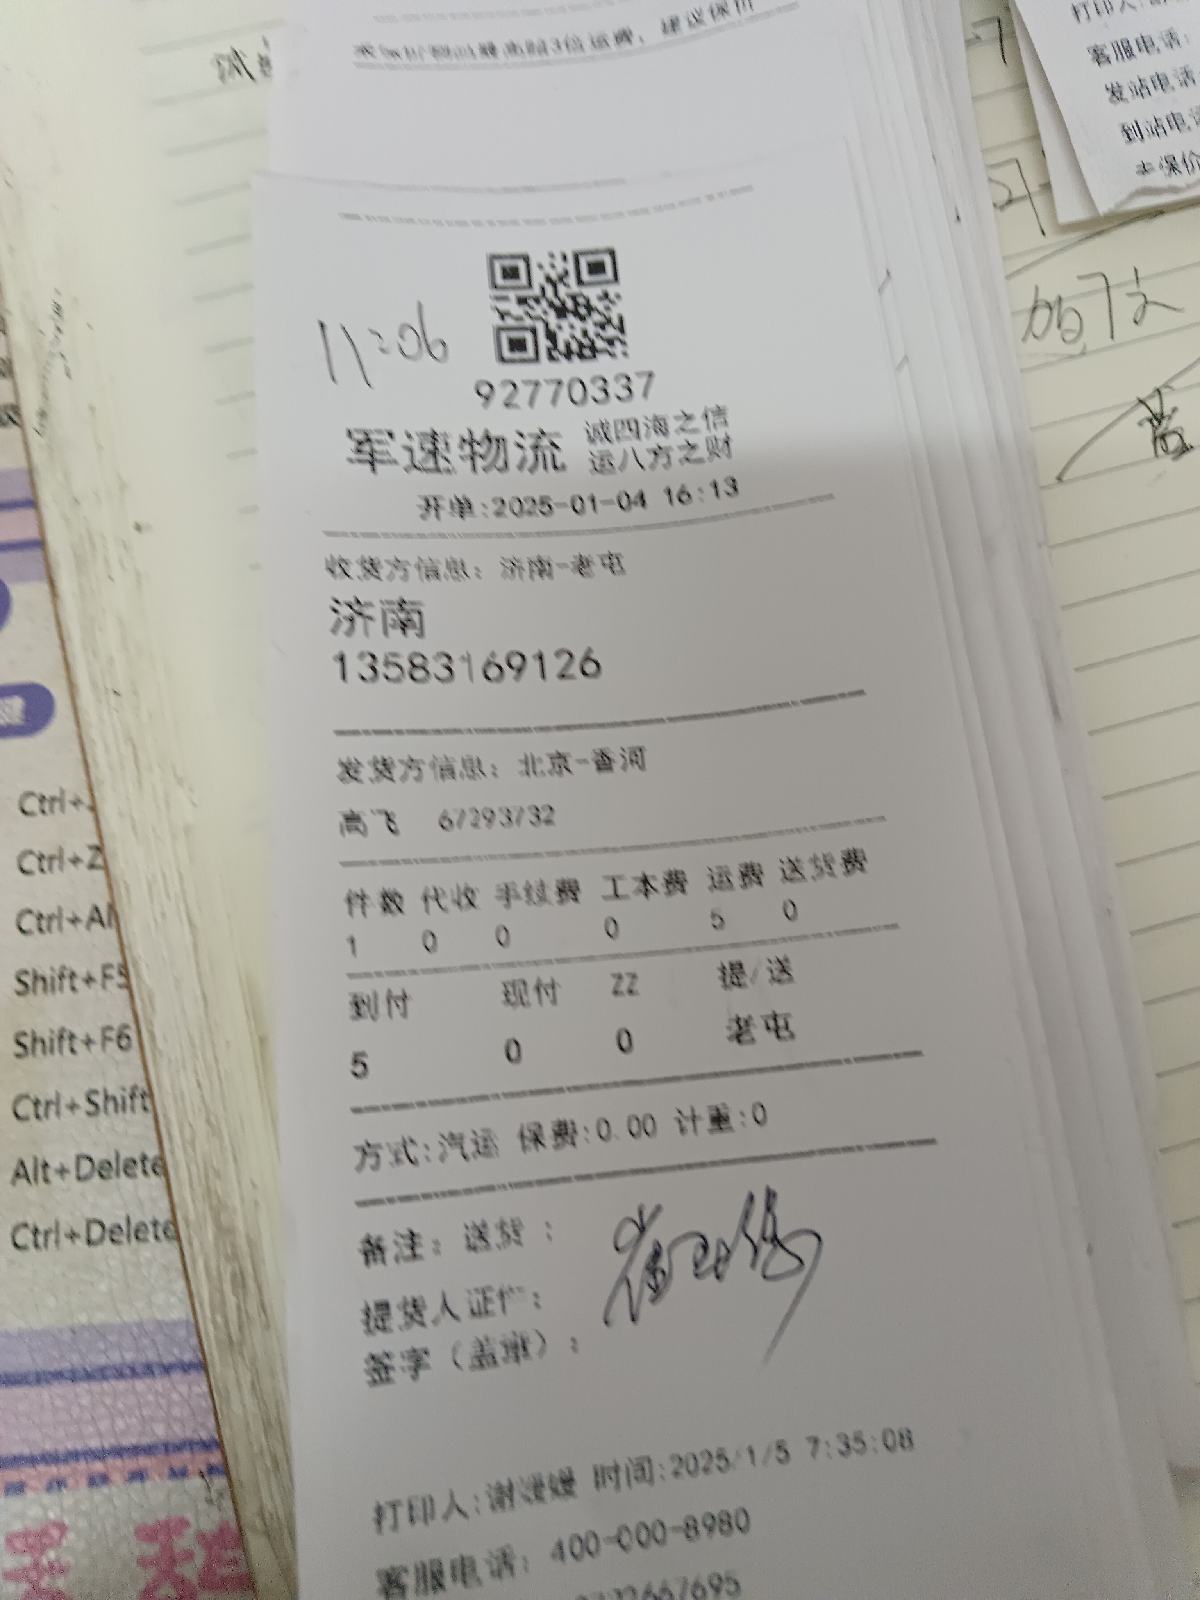 建议保价
打印人:
客服电话:
发站电话:
到站电话
未保价
11:06
92770337
军速物流 诚四海之信
运八方之财
开单:2025-01-04 16:13
收货方信息: 济南-老屯
济南
13583169126
发货方信息: 北京-香河
高飞 67293732
件数 代收 手续费 工本费 运费 送货费
1 0 0 0 5 0
到付 现付 ZZ 提/送
5 0 0 老屯
方式:汽运 保费:0.00 计重:0
备注: 送货:
提货人证件:
签字(盖章):
打印人:谢媛媛 时间:2025/1/5 7:35:08
客服电话: 400-000-8980
Ctrl+
Ctrl+Z
Ctrl+Al
Shift+F5
Shift+F6
Ctrl+Shift
Alt+Delete
Ctrl+Delete